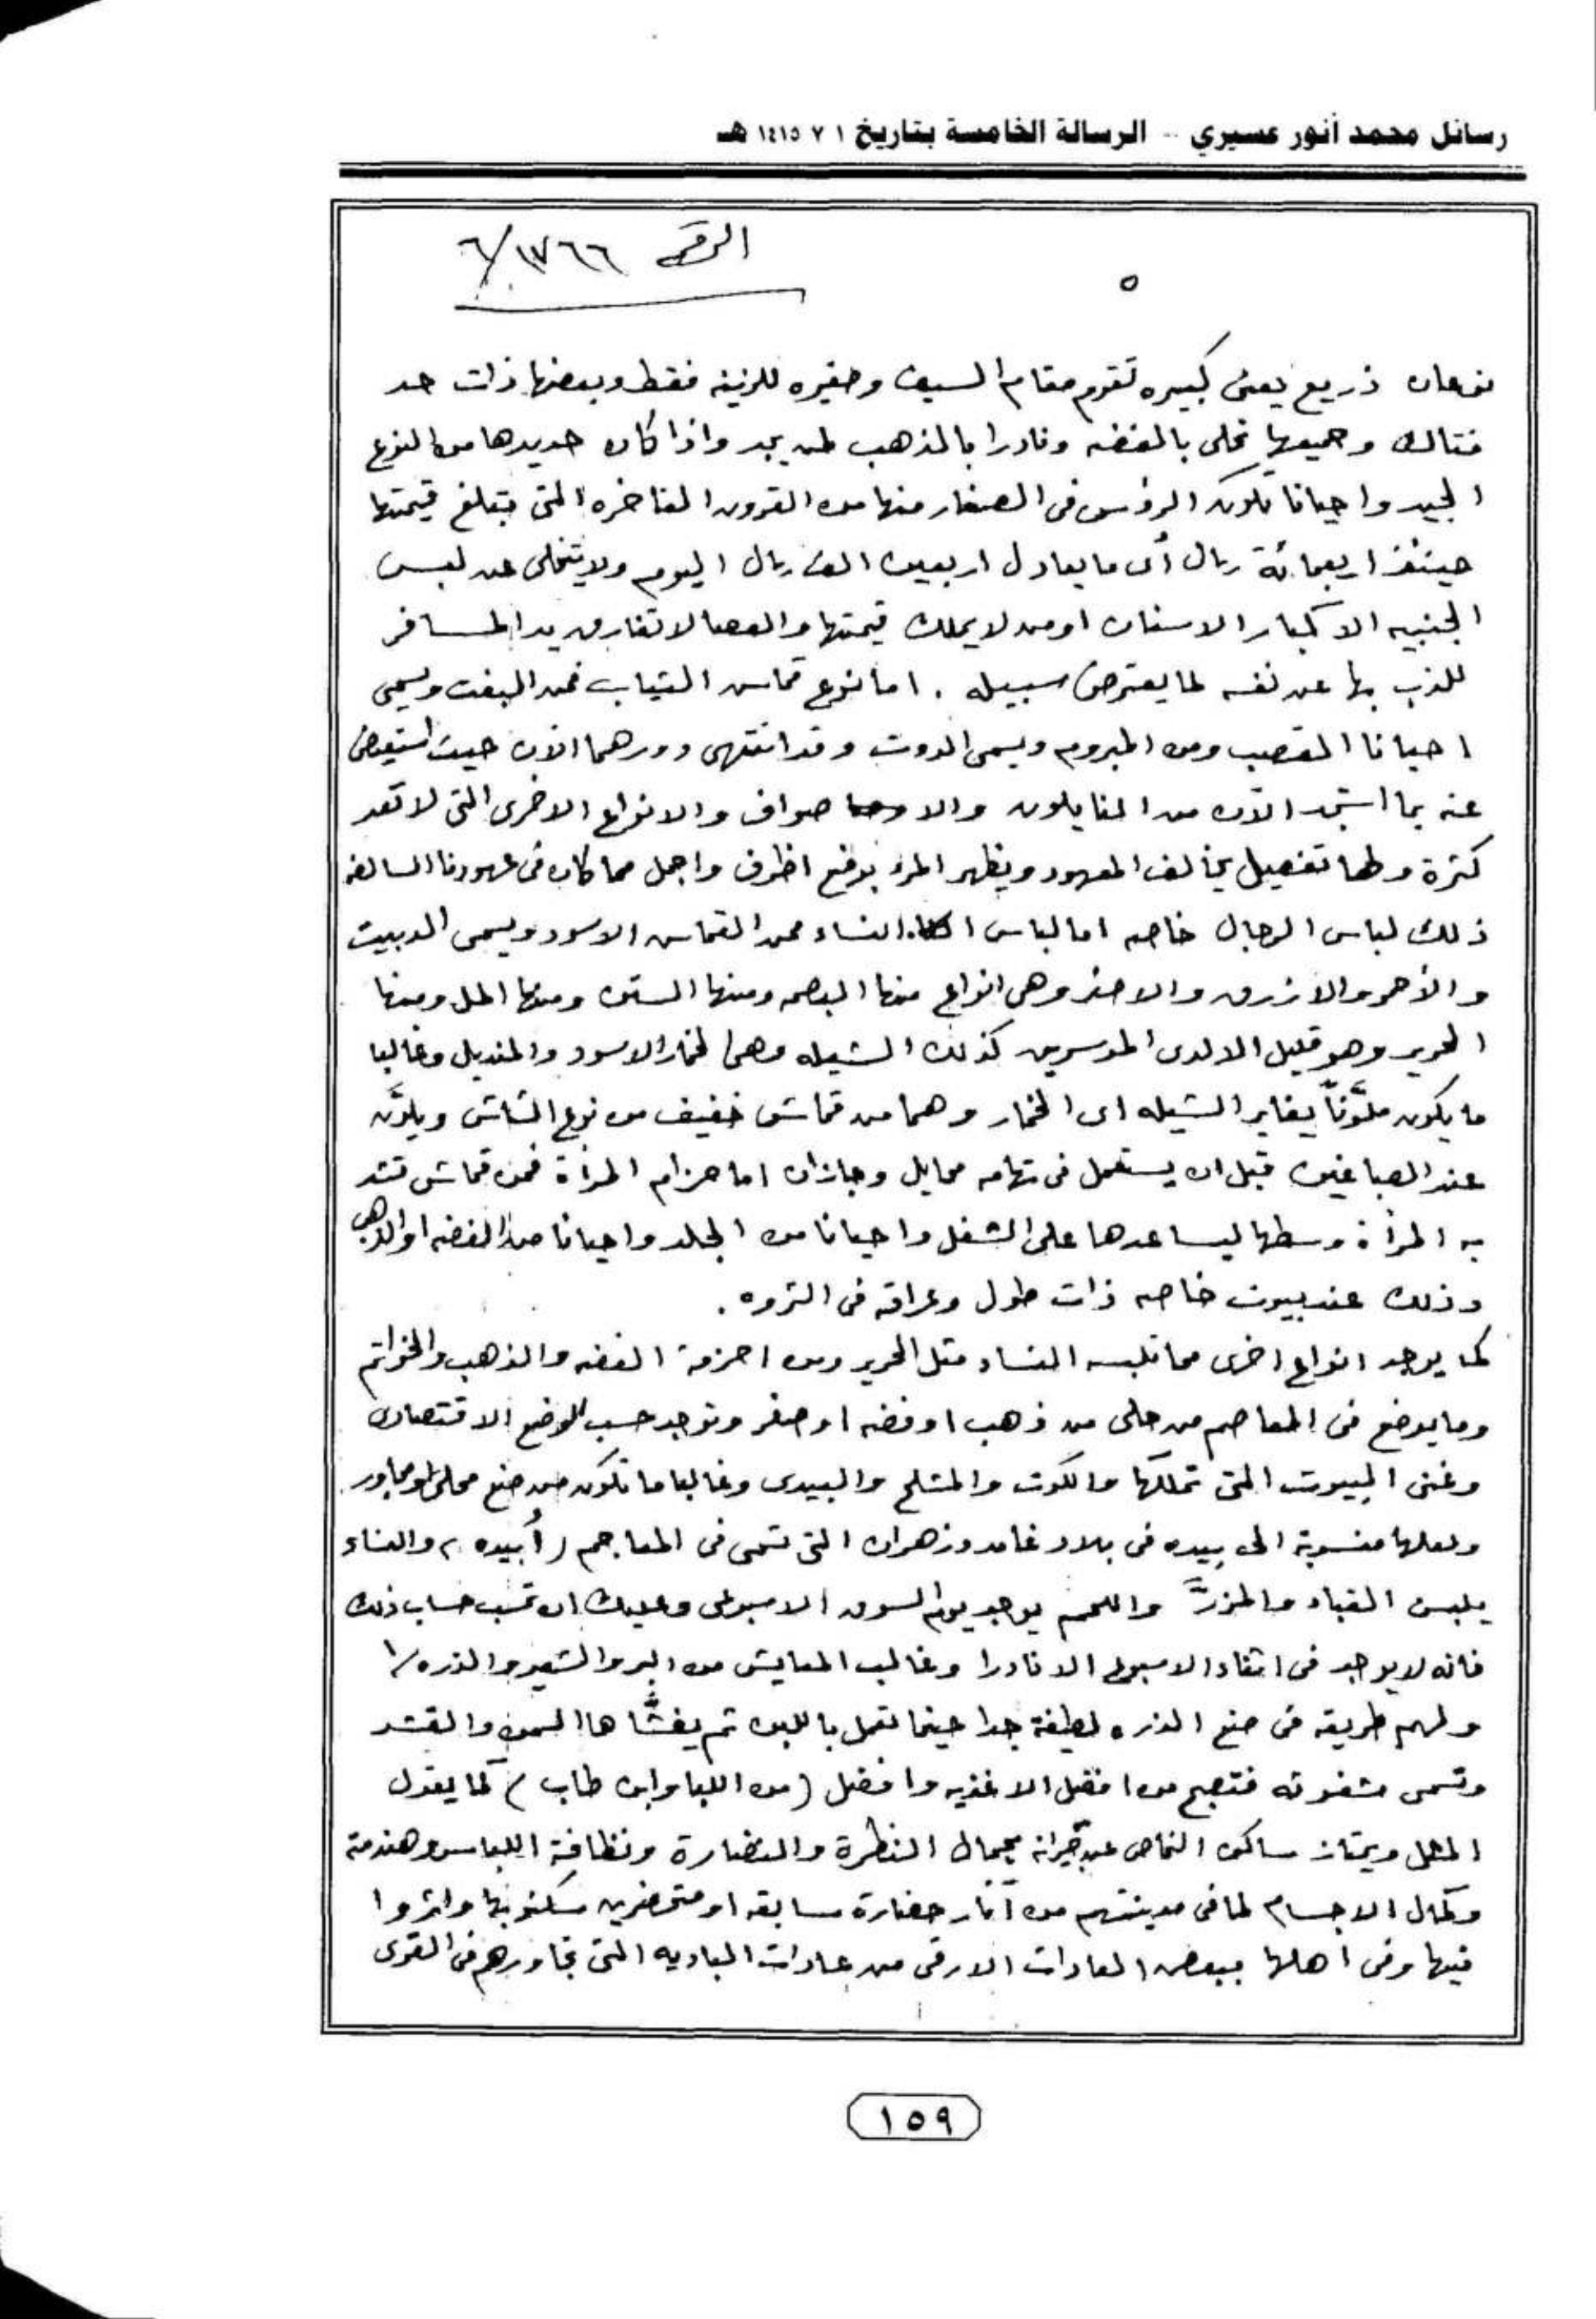 رسائل محمد أنور عسيري - الرسالة الخامسة بتاريخ ١ ٧ ١٤١٥ هـ
الرقم ١٧٦٦/٦
٥
نوعان ذريع يعنى كبيره تقوم مقام السيف وصغيره للزينه فقط وبعضها ذات حد
فتاك وجميعها تحلى بالفضه ونادرا بالذهب لمن يجد واذا كان حديدها من النوع
الجيد واحيانا تكون الرؤس فى الصغار منها من القرون الفاخره التى تبلغ قيمتها
حينئذ اربعمائة ريال أى ما يعادل اربعين الف ريال اليوم ولا يتخلى عن لبس
الجنبيه الا كبار الاسنان او من لا يملك قيمتها والعصا لا تفارق يد المسافر
للذب بها عن نفسه لما يعترض سبيله . اما نوع قماس الثياب فمن البفت ويسمى
احيانا المقصب ومن المبروم ويسمى الدوت وقد انتهى دورهما الان حيث استعيض
عنه بما استجد الآن من النايلون والا صواف والانواع الاخرى التى لا تعد
كثرة ولها تفصيل يخالف المعهود ويظهر المرء بوضع اظرف واجمل مما كان فى عهودنا السالفه
ذلك لباس الرجال خاصه اما لباس النساء فمن القماس الاسود ويسمى الدبيت
والأحمر والازرق والاخضر وهى انواع منها البصمه ومنها الستن ومنها الملل ومنها
الحرير وهو قليل الا لدى الموسرين كذلك الشيله وهى الخمار الاسود والمنديل وغالبا
ما يكون ملوَّناً يغاير الشيله اى الخمار وهما من قماش خفيف من نوع الشاش ويلوَّن
عند الصباغين قبل ان يستعمل فى تهامه محايل وجازان اما حزام المرأة فمن قماش تشد
به المرأة وسطها ليساعدها على الشغل واحيانا من الجلد واحيانا من الفضه او الذهب
وذلك عند بيوت خاصه ذات طول وعراقه فى الثروه .
كما يوجد انواع اخرى مما تلبسه النساء مثل الحرير ومن احزمة الفضه والذهب والخواتم
وما يوضع فى المعاصم من حلى من ذهب او فضه او صفر وتوجد حسب الوضع الاقتصادى
وغنى البيوت التى تملكها والكوت والمشلح والبيدى وغالبا ما تكون من صنع محلى او مجاور
ولعلها منسوبة الى بيده فى بلاد غامد وزهران التى تسمى فى المعاجم (أبيده) والنساء
يلبسن القباء والمزرَّ واللحم يوجد يوم السوق الاسبوعى وعليك ان تحسب حساب ذلك
فانه لا يوجد فى اثناء الاسبوع الا نادرا وغالب المعايش من البر والشعير والذره
ولهم طريقه فى صنع الذره لطيفة جدا حينما تعمل باللبن ثم يغشَّاها السمن والقشد
وتسمى مشغوثه فتصبح من افضل الاغذيه وافضل (من اللبا وابن طاب) كما يقول
المثل ويمتاز ساكن النماص عن جيرانه بجمال النظرة والنضارة ونظافة اللباس وهندمته
وكمال الاجسام لما فى مدينتهم من آثار حضارة سابقه او متحضرين سكنو بها واثروا
فيها وفى اهلها ببعض العادات الارقى من عادات الباديه التى تجاورهم فى القرى
١٥٩